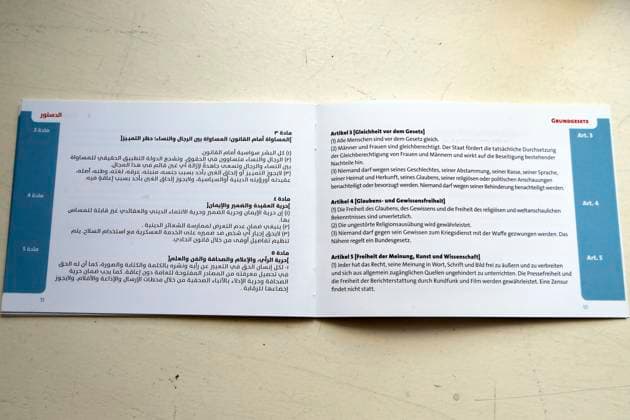 الدستور
مادة 3
مادة 4
مادة 5
مادة ٣
[المساواة أمام القانون؛ المساواة بين الرجال والنساء؛ حظر التمييز]
(١) كل البشر سواسية أمام القانون.
(٢) الرجال والنساء متساوون في الحقوق. وتشجع الدولة التطبيق الحقيقي للمساواة
بين النساء والرجال وتسعى جاهدةً لإزالة أي غبن قائم في هذا المجال.
(٣) لايجوز التمييز أو إلحاق الغبن بأحد بسبب جنسه، منبته، عرقه، لغته، وطنه، أصله،
عقيدته أورؤيته الدينية أوالسياسية. ولايجوز إلحاق الغبن بأحد بسبب إعاقة فيه.
مادة ٤
[حرية العقيدة والضمير والإيمان]
(١) إن حرية الإيمان وحرية الضمير وحرية الانتماء الديني والعقائدي غير قابلة للمساس
بها.
(٢) ينبغي ضمان عدم التعرض لممارسة الشعائر الدينية.
(٣) لايحق إجبار أي شخص ضد ضميره على الخدمة العسكرية مع استخدام السلاح. يتم
تنظيم تفاصيل أوفى من خلال قانون اتحادي.
مادة ٥
[حرية الرأي، والإعلام والصحافة والفن والعلم]
١- لكل إنسان الحق في التعبير عن رأيه ونشره بالكلمة والكتابة والصورة، كما أن له الحق
في تحصيل معرفته من المصادر المفتوحة للعامة دون إعاقة. كما يجب ضمان حرية
الصحافة وحرية الإدلاء بالأنباء الصحفية من خلال محطات الإرسال والإذاعة والأفلام. ولايجوز
إخضاعها للرقابة.
Grundgesetz
Art. 3
Art. 4
Art. 5
Artikel 3 [Gleichheit vor dem Gesetz]
(1) Alle Menschen sind vor dem Gesetz gleich.
(2) Männer und Frauen sind gleichberechtigt. Der Staat fördert die tatsächliche Durchsetzung
der Gleichberechtigung von Frauen und Männern und wirkt auf die Beseitigung bestehender
Nachteile hin.
(3) Niemand darf wegen seines Geschlechtes, seiner Abstammung, seiner Rasse, seiner Sprache,
seiner Heimat und Herkunft, seines Glaubens, seiner religiösen oder politischen Anschauungen
benachteiligt oder bevorzugt werden. Niemand darf wegen seiner Behinderung benachteiligt werden.
Artikel 4 [Glaubens- und Gewissensfreiheit]
(1) Die Freiheit des Glaubens, des Gewissens und die Freiheit des religiösen und weltanschaulichen
Bekenntnisses sind unverletzlich.
(2) Die ungestörte Religionsausübung wird gewährleistet.
(3) Niemand darf gegen sein Gewissen zum Kriegsdienst mit der Waffe gezwungen werden. Das
Nähere regelt ein Bundesgesetz.
Artikel 5 [Freiheit der Meinung, Kunst und Wissenschaft]
(1) Jeder hat das Recht, seine Meinung in Wort, Schrift und Bild frei zu äußern und zu verbreiten
und sich aus allgemein zugänglichen Quellen ungehindert zu unterrichten. Die Pressefreiheit und
die Freiheit der Berichterstattung durch Rundfunk und Film werden gewährleistet. Eine Zensur
findet nicht statt.